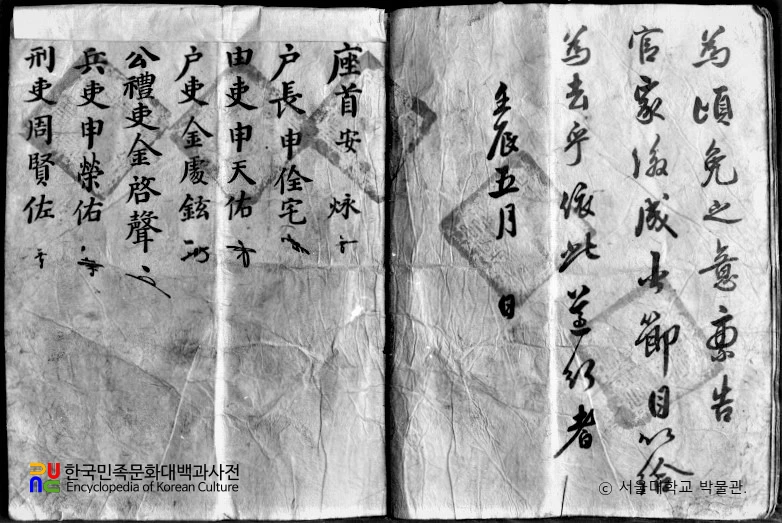 為頃免之意稟告
官家後成出節目以給
為去乎依此遵行者
壬辰五月 日
座首安 烑
戶長申佺宅
由吏申天佑
戶吏金處鉉
公禮吏金啓聲
兵吏申榮佑
刑吏周賢佐
한국민족문화대백과사전
Encyclopedia of Korean Culture
ⓒ 서울대학교 박물관.